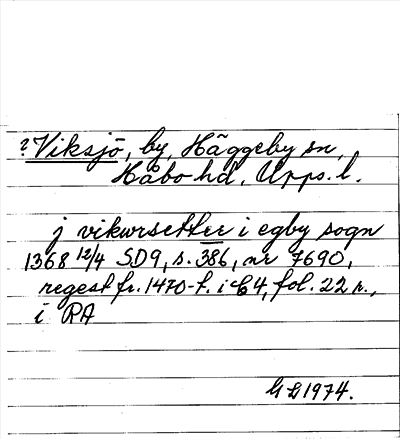 ? Viksjö, by, Häggeby sn,
Håbo hd, Upps. l.
j vikwrsetter i egby sogn
1368 12/4 SD9, s. 386, nr 7690,
regest fr. 1470-t. i C 4, fol. 22 r.,
i RA
GL 1974.